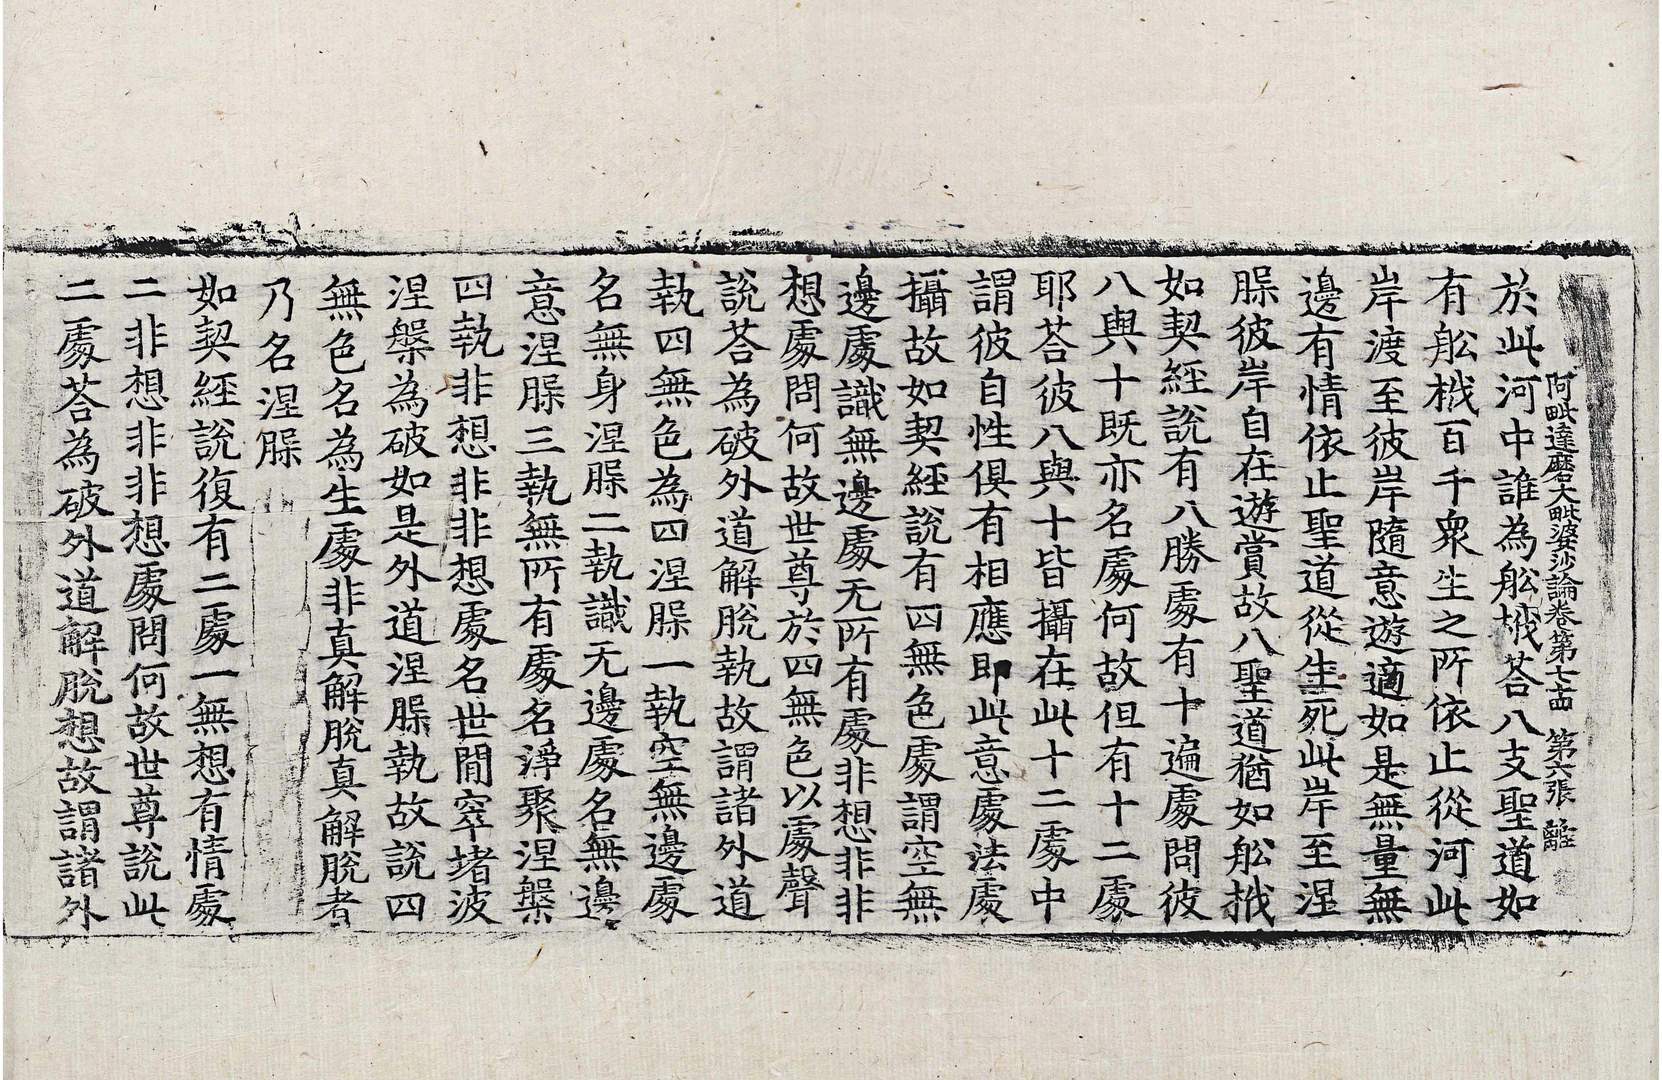 阿毗達磨大毗婆沙論卷第七十四 第六張 離
於此河中誰為舩栰荅八支聖道如
有舩栰百千衆生之所依止從河此
岸渡至彼岸隨意遊適如是無量無
邊有情依止聖道從生死此岸至涅
槃彼岸自在遊賞故八聖道猶如舩栰
如契經說有八勝處有十遍處問彼
八與十既亦名處何故但有十二處
耶荅彼八與十皆攝在此十二處中
謂彼自性俱有相應即此意處法處
攝故如契經說有四無色處謂空無
邊處識無邊處无所有處非想非非
想處問何故世尊於四無色以處聲
說荅為破外道解脫執故謂諸外道
執四無色為四涅槃一執空無邊處
名無身涅槃二執識无邊處名無邊
意涅槃三執無所有處名淨聚涅槃
四執非想非非想處名世間窣堵波
涅槃為破如是外道涅槃執故說四
無色名為生處非真解脫真解脫者
乃名涅槃
如契經說復有二處一無想有情處
二非想非非想處問何故世尊說此
二處荅為破外道解脫想故謂諸外